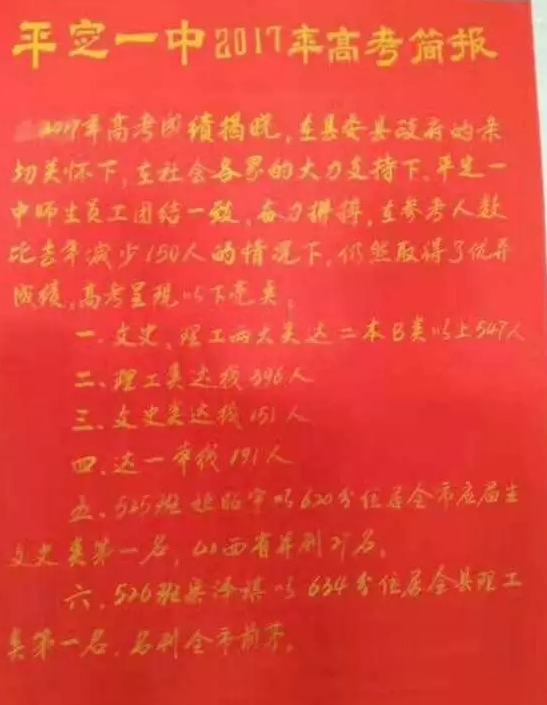 平定一中2017年高考简报
2017年高考成绩揭晓,在县委县政府的亲
切关怀下,在社会各界的大力支持下,平定一
中师生员工团结一致,奋力拼搏,在参考人数
比去年减少150人的情况下,仍然取得了优异
成绩,高考呈现以下亮点:
一、文史、理工两大类达二本B类以上547人
二、理工类达线396人
三、文史类达线151人
四、达一本线191人
五、525班 昭宇以620分位居全市应届生
文史类第一名,山西省并列27名。
六、526班 泽 以634分位居全县理工
类第一名,名列全市前茅。